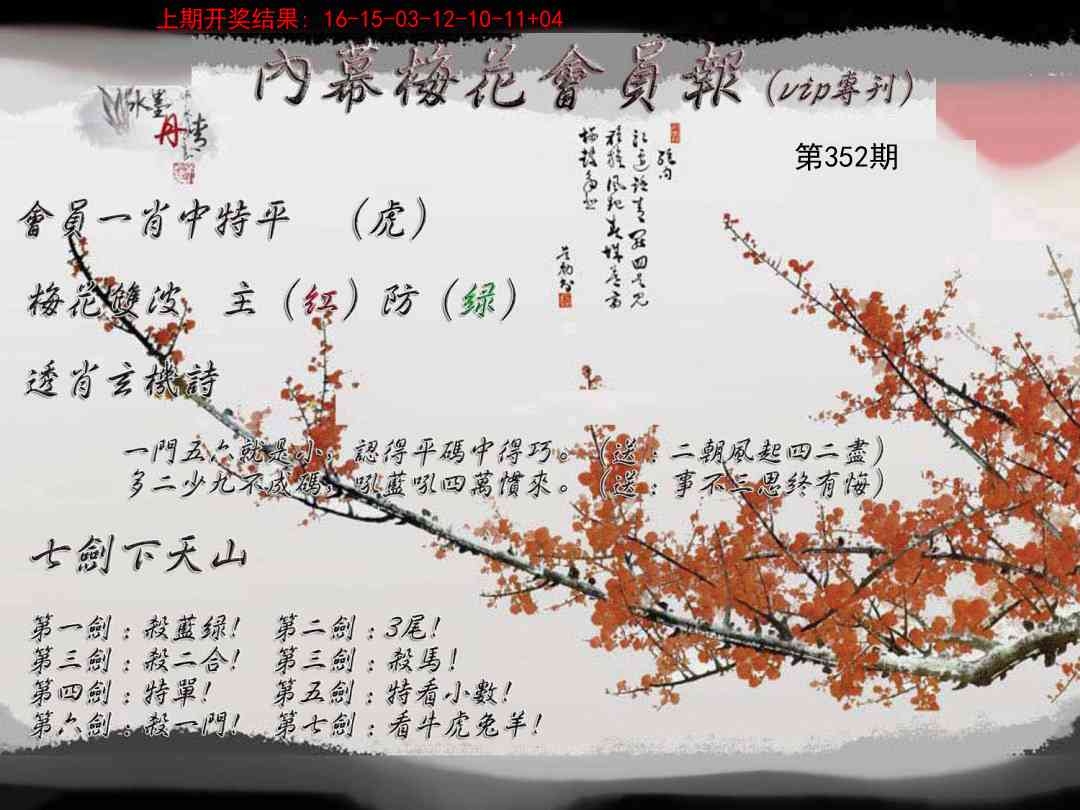 上期开奖结果: 16-15-03-12-10-11+04
內幕梅花會員報(vip專刊)
水墨
丹情
第352期
會員一肖中特平 （虎）
梅花雙波 主（红）防（绿）
透肖玄機詩
一門五六就是小，認得平碼中得巧。（送：二朝風起四二盡）
多二少九不成碼，吼藍吼四萬慣來。（送：事不三思終有悔）
七劍下天山
第一劍：殺藍绿！ 第二劍：3尾！
第三劍：殺二合！ 第三劍：殺馬！
第四劍：特單！ 第五劍：特看小數！
第六劍：殺一門！ 第七劍：看牛虎兔羊！